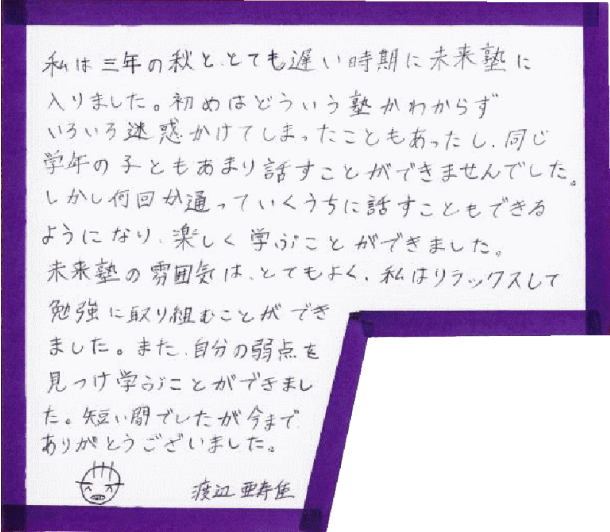 私は三年の秋と、とても遅い時期に未来塾に
入りました。初めはどういう塾かわからず
いろいろ迷惑かけてしまったこともあったし、同じ
学年の子ともあまり話すことができませんでした。
しかし何回か通っていくうちに話すこともできる
ようになり、楽しく学ぶことができました。
未来塾の雰囲気は、とてもよく、私はリラックスして
勉強に取り組むことができ
ました。また、自分の弱点を
見つけ学ぶことができまし
た。短い間でしたが今まで
ありがとうございました。
渡辺 亜寿佳